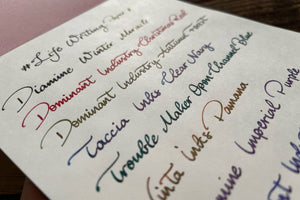 #Life Writing Paper
Diamine Winter Miracle
Dominant Industry Christmas Red
Dominant Industry Autumn
Taccia Inks Clear Navy
Trouble Maker Open Channel Blue
Vinta Inks Pamana
Imperial Purple